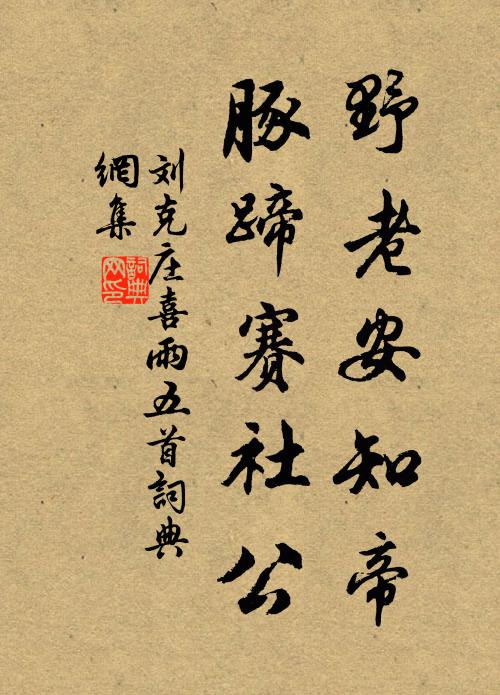 野老安知帝
豚蹄賽社公
刘克庄喜雨五首詞典
網集
詞典网印